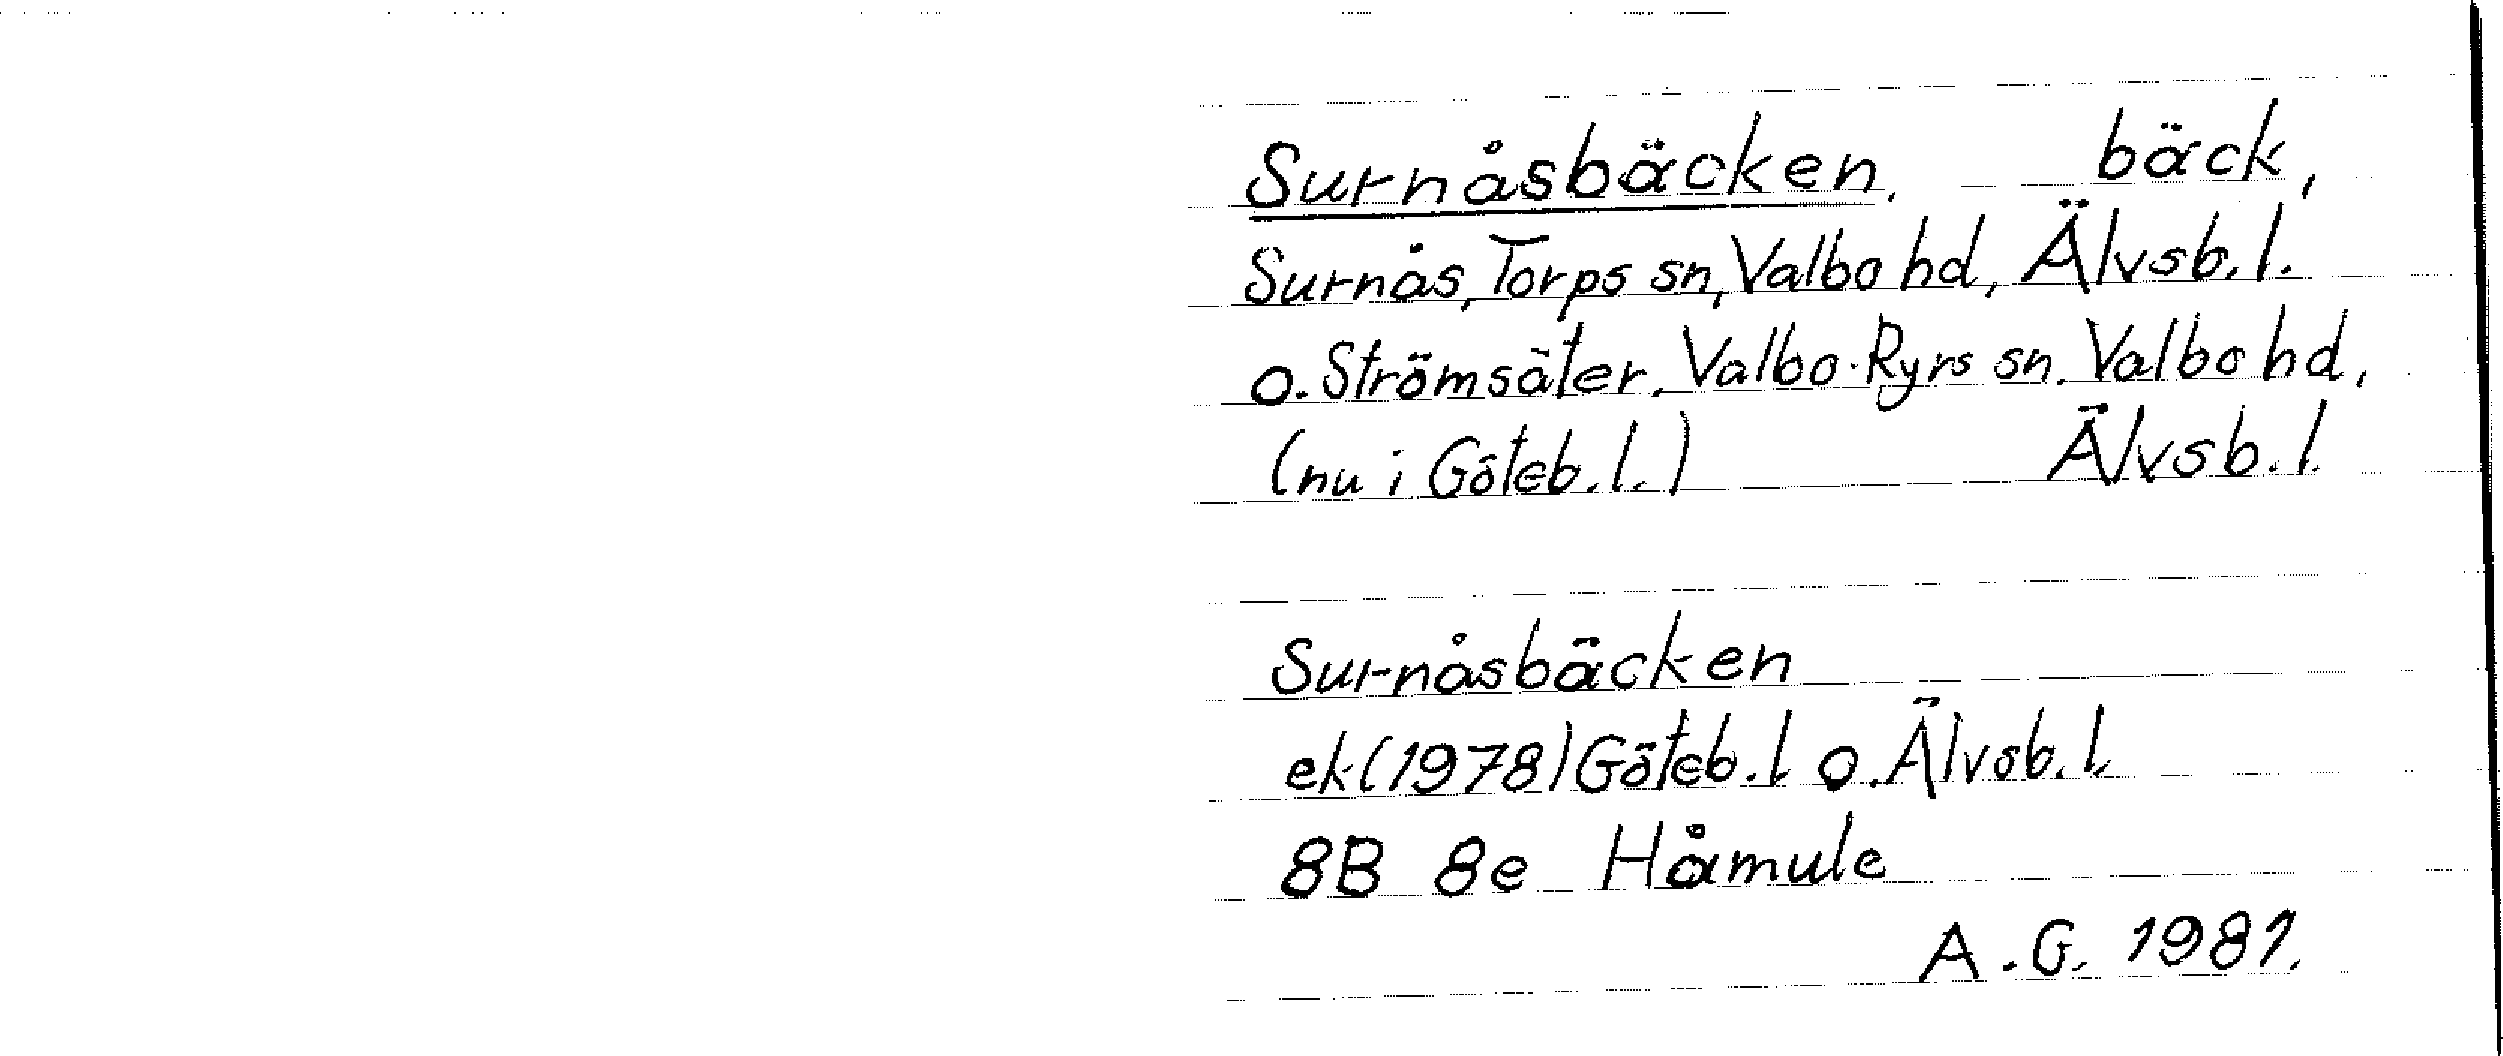 Surnåsbäcken. bäck,
Surnås, Torps sn, Valbo hd, Älvsb. l.
o. Strömsäter, Valbo-Ryrs sn. Valbo hd,
(nu i Göteb. l.) Älvsb. l.
Surnåsbäcken
ek (1978) Göteb. l. o. Älvsb. l.
8B 8e Håmule
A. G. 1981.